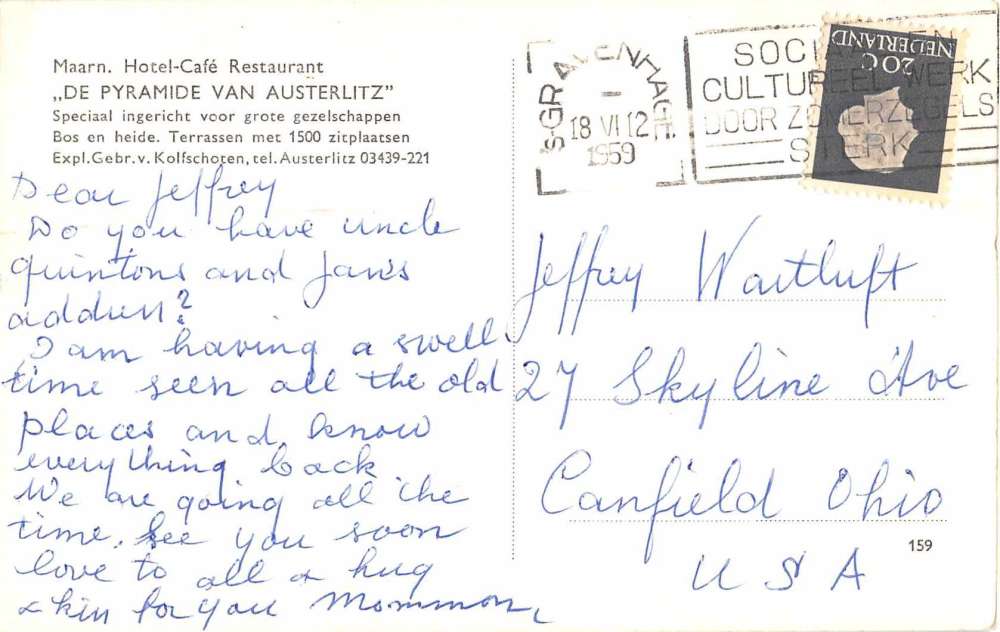 Maarn. Hotel-Café Restaurant
„DE PYRAMIDE VAN AUSTERLITZ”
Speciaal ingericht voor grote gezelschappen
Bos en heide. Terrassen met 1500 zitplaatsen
Expl.Gebr.v. Kolfschoten, tel. Austerlitz 03439-221
Dear Jeffrey
Do you have uncle
quintons and Jan's
?
I am having a swell
time seen all the old
places and know
everything back
We are going all the
time. See you soon
love to all a hug
& kiss for you Mommom,
'S-GRAVENHAGE
18 VI 12
1959
SOCIAAL EN
CULTUREEL WERK
DOOR ZOMERZEGELS
STERK
NEDERLAND
20 C
Jeffrey Wartluft
27 Skyline Ave
Canfield Ohio
U S A
159